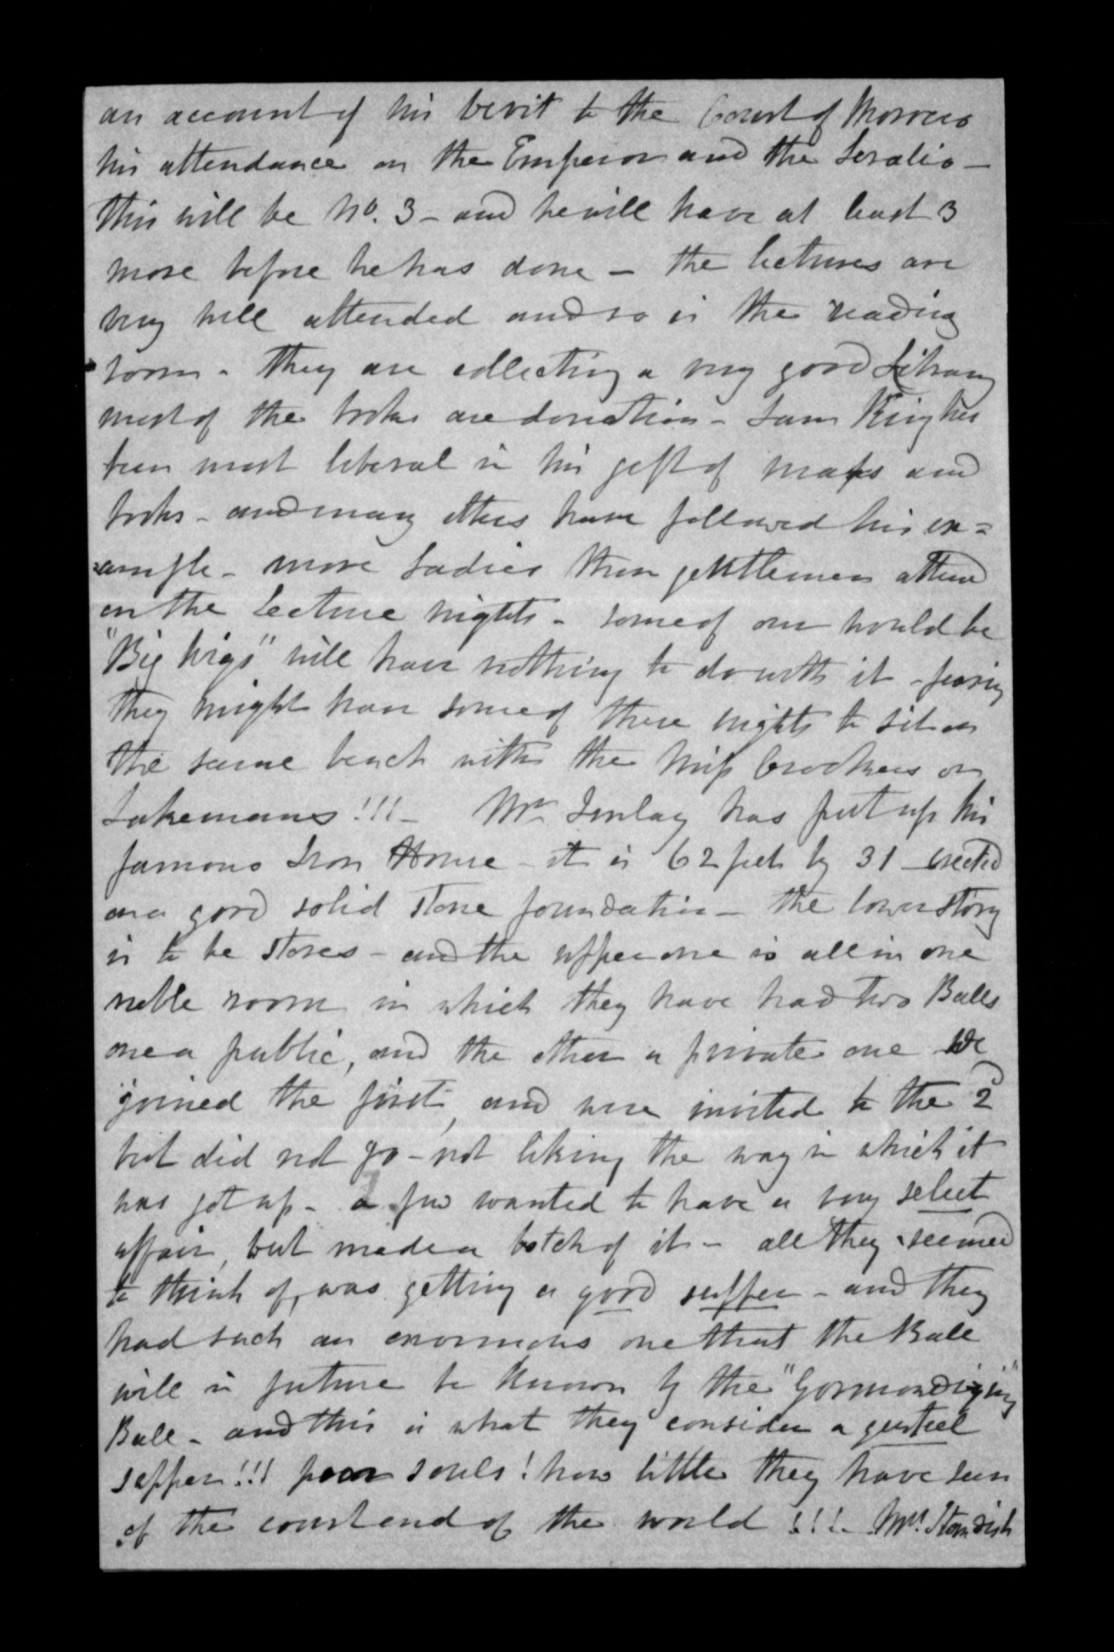 an account of his visit to the Court of Morocco
his attendance on the Emperor and the Seralio –
this will be No. 3 – and he will have at least 3
more before he has done – the lectures are
very well attended and so is the reading
room – they are collecting a very good Library
most of the books are donations – Sam King has
been most liberal in his gift of maps and
books – and many others have followed his ex=
=ample – more Ladies than gentlemen attend
on the Lecture nights – some of our would be
"Big wigs" will have nothing to do with it – fearing
they might have some of these nights to sit on
the same bench with the Miss Crockers or
Lakemans!!! – Mr. Finlay has put up his
famous Iron House – it is 62 feet by 31 – erected
on a good solid stone foundation – the lower story
is to be stores – and the upper one is all in one
noble room in which they have had two Balls
one a public, and the other a private one We
joined the first, and were invited to the 2d
but did not go – not liking the way in which it
was got up – a few wanted to have a very select
affair, but made a botch of it – all they seemed
to think of, was getting a good supper – and they
had such an enormous one that the Ball
will in future be known by the "Gormondizing"
Ball – and this is what they consider a genteel
supper!!! poor souls! how little they have seen
of the court end of the world!!! – Mrs. Standish